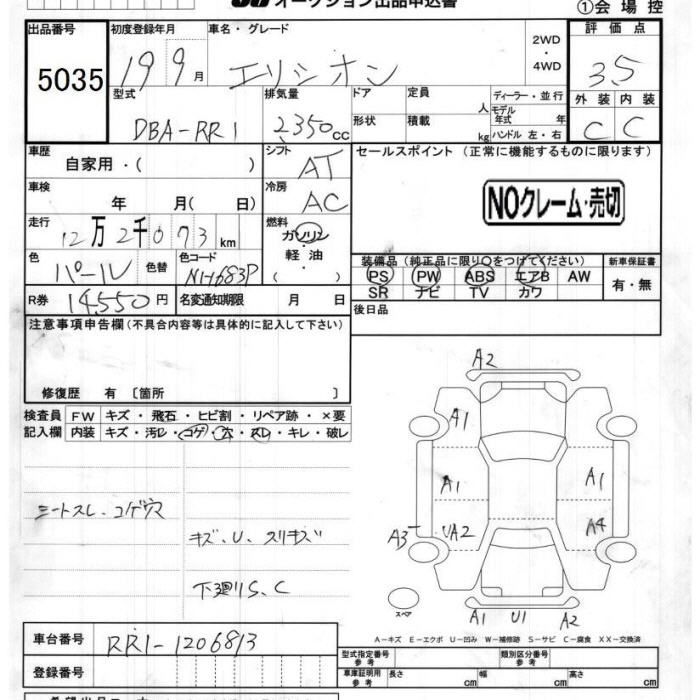 オークション出品申込書 ①会場控
出品番号 初度登録年月 車名・グレード 2WD・4WD 評価点
5035 19 9月 エリシオン 3.5
型式 排気量 ドア 定員 人 ディーラー・並行 外装 内装
DBA-RR1 2350cc 形状 積載 kg モデル年式 年 ハンドル 左・右 C C
車歴 自家用・( ) シフト AT セールスポイント (正常に機能するものに限ります)
車検 年 月( 日) 冷房 AC NOクレーム・売切
走行 12万2千073km 燃料 ガソリン・軽油・( )
色 パール 色替 色コード NH683P 装備品 (純正品に限り○をつけてください) 新車保証書
PS PW ABS エアB AW 有・無
SR ナビ TV カワ
R券 14,550円 名変通知期限 月 日 後日品
注意事項申告欄(不具合内容等は具体的に記入して下さい)
修復歴 有 〔箇所 〕
検査員 FW キズ・飛石・ヒビ割・リペア跡・×要
記入欄 内装 キズ・汚レ・コゲ・穴・スレ・キレ・破レ
シートスレ・コゲ穴
キズ、U、スリキズ
下廻りS、C
A2
A1
A1 A1
A3 UA2 A4
スペア
A1 U1 A2
A-キズ E-エクボ U-凹み W-補修跡 S-サビ C-腐食 XX-交換済
車台番号 RR1-1206813
登録番号
型式指定番号 参考 類別区分番号 参考
車庫証明用 参考 長さ cm 幅 cm 高さ cm